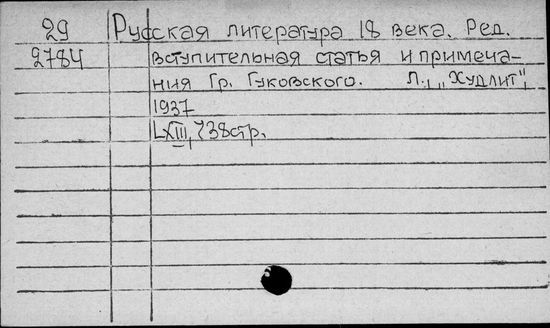 29 Русская литература 18 века. Ред.
2784 вступительная статья и примеча-
ния Гр. Гуковского. Л., „Худлит",
1937
LXIII, 738стр.